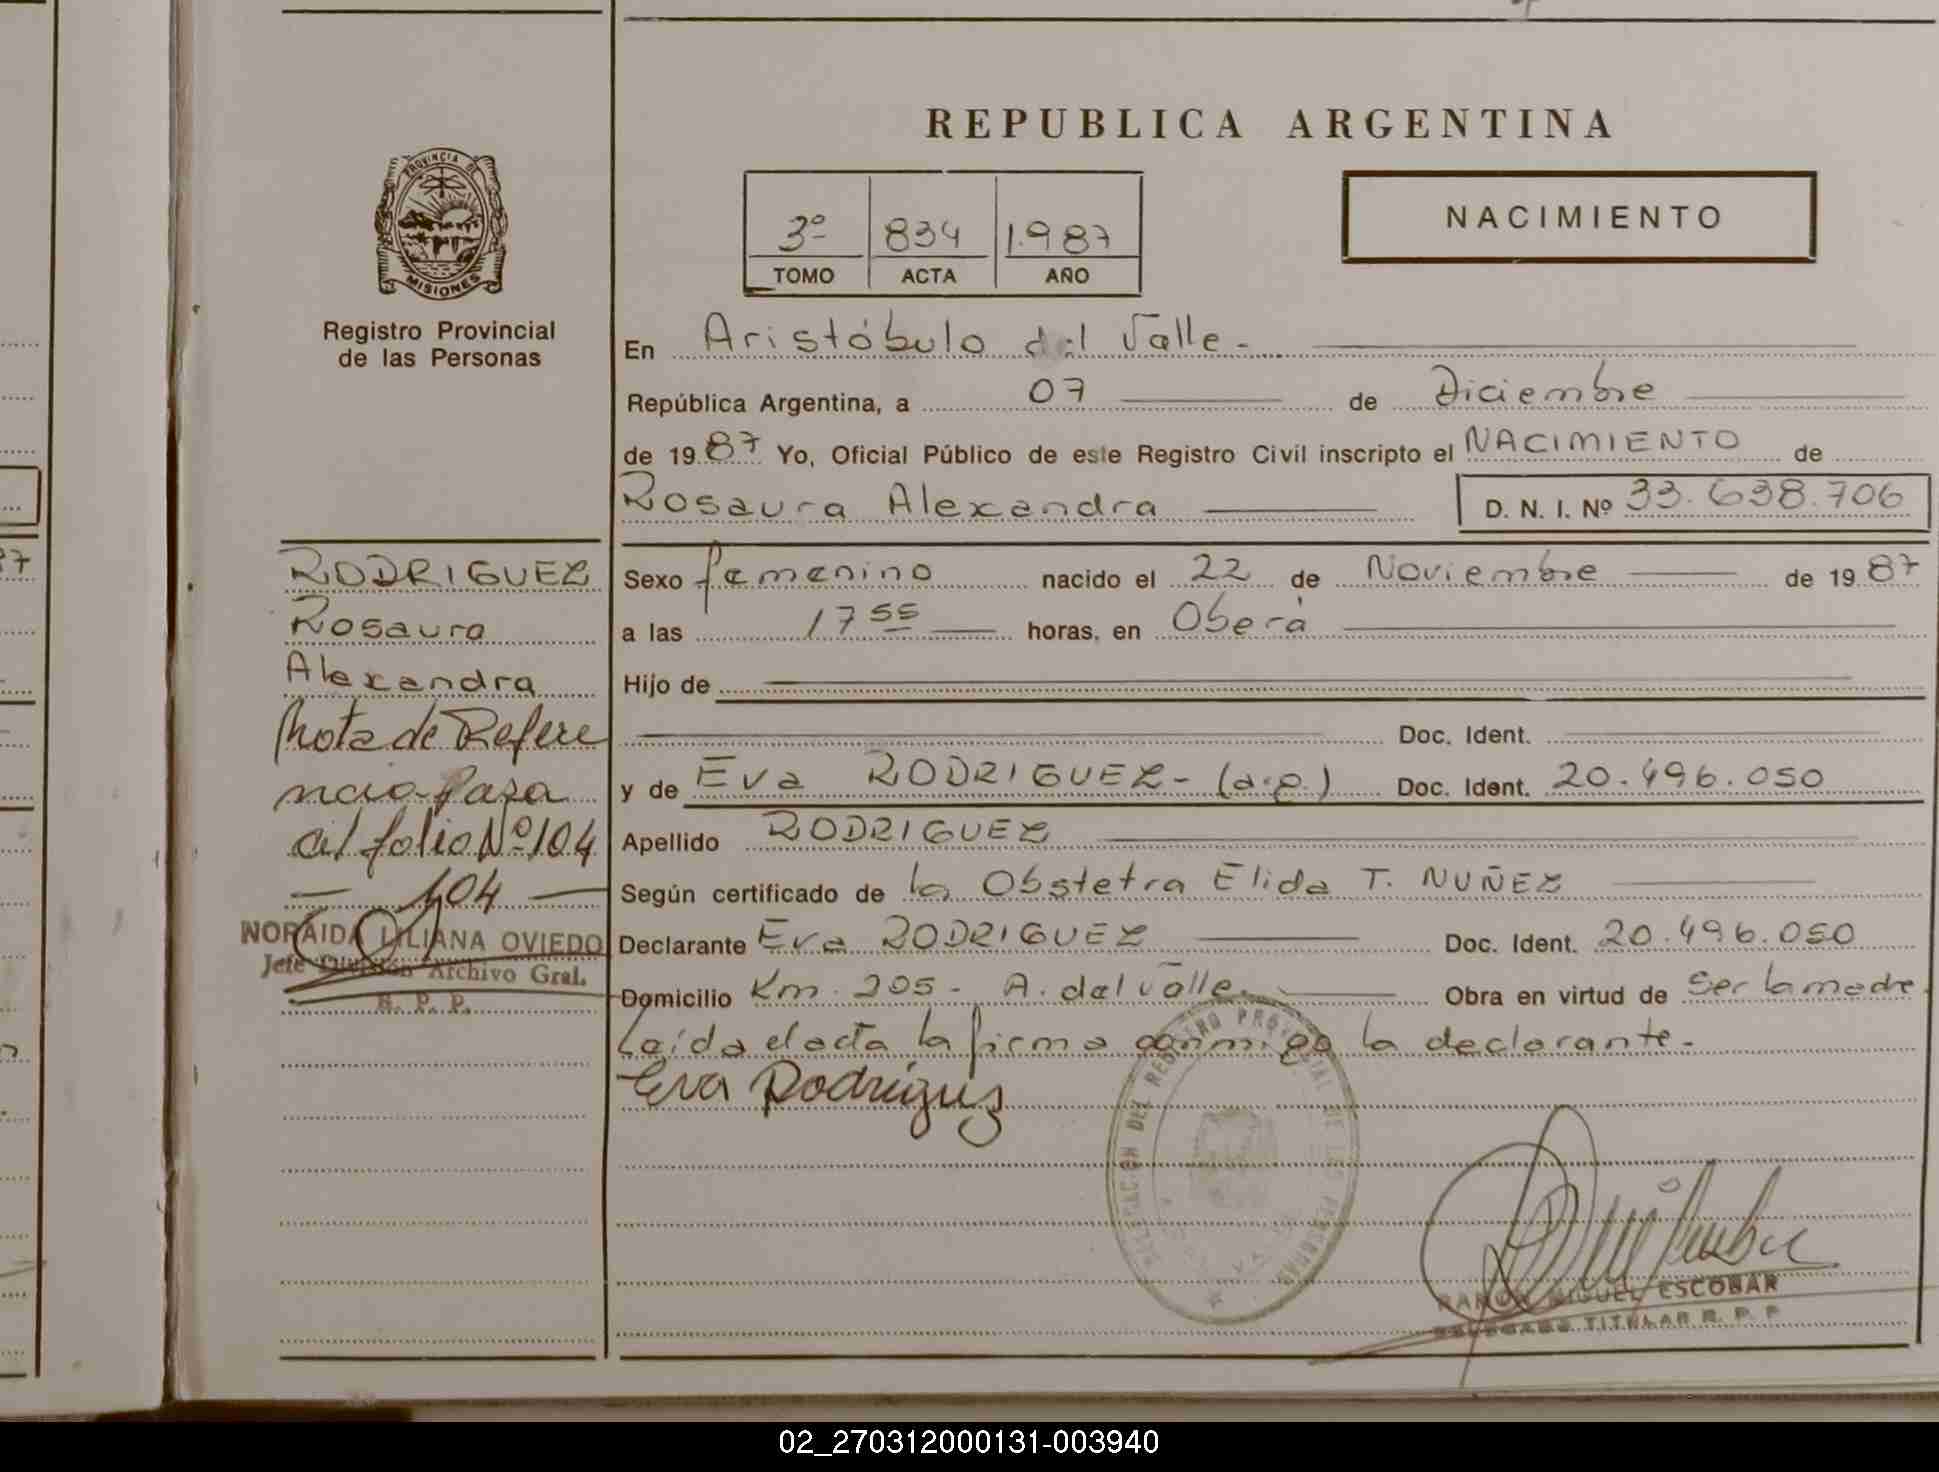 REPUBLICA ARGENTINA
PROVINCIA DE
MISIONES
Registro Provincial
de las Personas
3º 834 1.987
TOMO ACTA AÑO
NACIMIENTO
En Aristóbulo del Valle.-
República Argentina, a 07 de Diciembre
de 19 87 Yo, Oficial Público de este Registro Civil inscripto el NACIMIENTO de
Rosaura Alexandra D. N. I. Nº 33.638.706
Sexo femenino nacido el 22 de Noviembre de 19 87
a las 17 55 horas, en Oberá
Hijo de
Doc. Ident.
y de Eva RODRIGUEZ - (a.p.) Doc. Ident. 20.496.050
Apellido RODRIGUEZ
Según certificado de la Obstetra Elida T. NUÑEZ
Declarante Eva RODRIGUEZ Doc. Ident. 20.496.050
Domicilio Km. 205 - A. del Valle. Obra en virtud de ser la madre.
Leída el acta la firma conmigo la declarante.-
Eva Rodriguez
DELEGACION DEL REGISTRO PROVINCIAL DE LAS PERSONAS
RAMON MIGUEL ESCOBAR
DELEGADO TITULAR R. P. P
RODRIGUEZ
Rosaura
Alexandra
Nota de Refere
ncia pasa
al folio Nº 104
— 104 —
NORAIDA LILIANA OVIEDO
Jefe División Archivo Gral.
R. P. P.
87
02_270312000131-003940